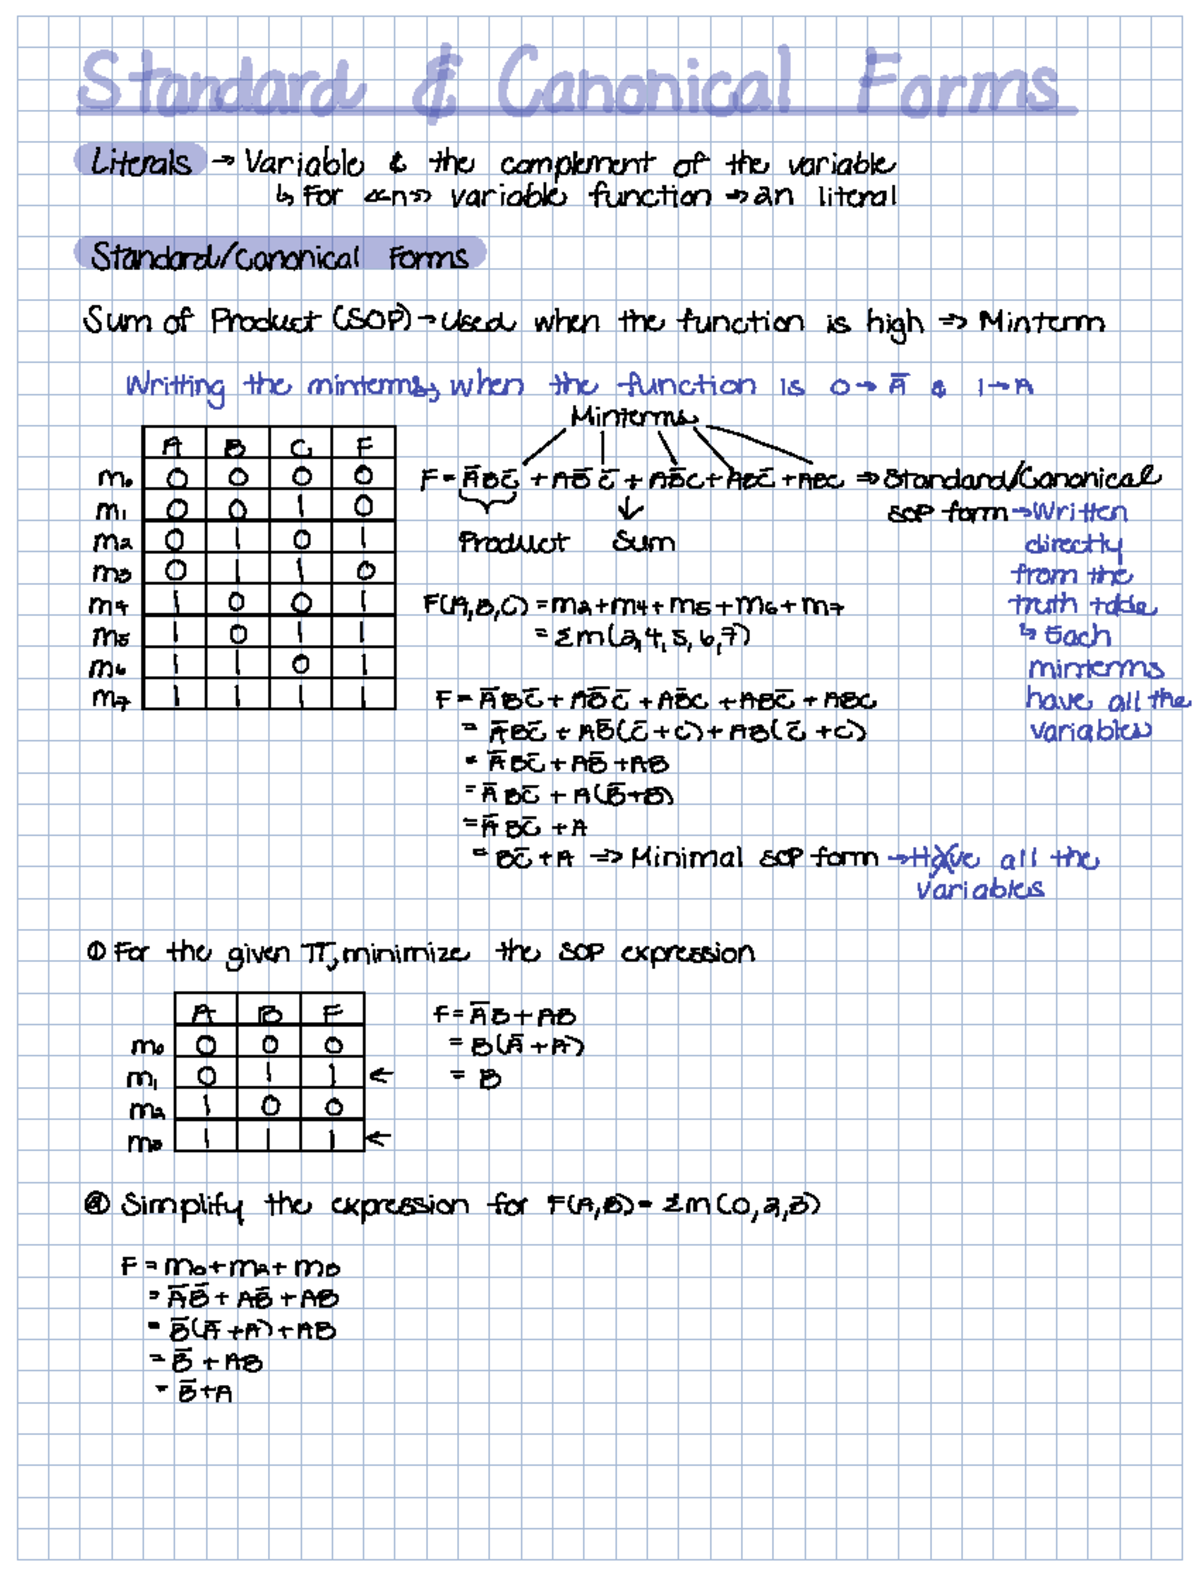 Standard & Canonical Forms
Literals → Variable & the complement of the variable
↳ For <<n>> variable function → 2n literal
Standard/Canonical Forms
Sum of Product (SOP) → Used when the function is high => Minterm
Writting the minterms, when the function is 0→A̅ & 1→A
Minterms
A B C F
m₀ 0 0 0 0
m₁ 0 0 1 0
m₂ 0 1 0 1
m₃ 0 1 1 0
m₄ 1 0 0 1
m₅ 1 0 1 1
m₆ 1 1 0 1
m₇ 1 1 1 1
F = A̅BC̅ + AB̅C̅ + AB̅C + ABC̅ + ABC => Standard/Canonical
SOP form → Written
directly
from the
truth table
↳ Each
minterms
have all the
variables
Product Sum
F(A,B,C) = m₂+m₄+m₅+m₆+m₇
= Σm(2,4,5,6,7)
F = A̅BC̅ + AB̅C̅ + AB̅C + ABC̅ + ABC
= A̅BC̅ + AB̅(C̅+C) + AB(C̅+C)
= A̅BC̅ + AB̅ + AB
= A̅BC̅ + A(B̅+B)
= A̅BC̅ + A
= BC̅ + A => Minimal SOP form → Have all the
variables
① For the given TT, minimize the SOP expression
A B F
m₀ 0 0 0
m₁ 0 1 1 ←
m₂ 1 0 0
m₃ 1 1 1 ←
F = A̅B + AB
= B(A̅+A)
= B
② Simplify the expression for F(A,B) = Σm(0,2,3)
F = m₀+m₂+m₃
= A̅B̅ + AB̅ + AB
= B̅(A̅+A) + AB
= B̅ + AB
= B̅+A